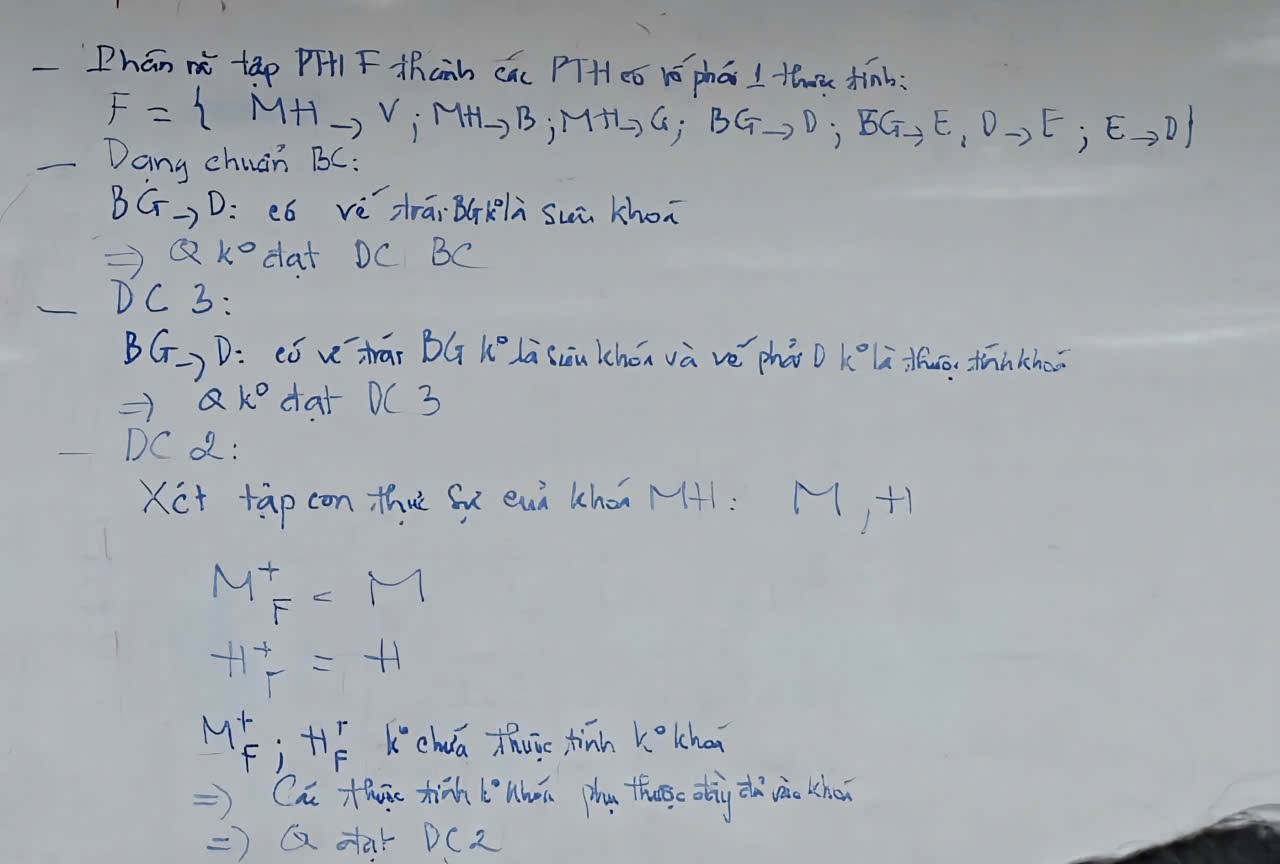 - Phân rã tập PTH F thành các PTH có vế phải 1 thuộc tính:
F = { MH → V ; MH → B ; MH → G ; BG → D ; BG → E, D → E ; E → D }
- Dạng chuẩn BC:
BG → D: có vế trái BG k° là siêu khoá
⇒ Q k° đạt DC BC
- DC 3:
BG → D: có vế trái BG k° là siêu khóa và vế phải D k° là thuộc tính khoá
⇒ Q k° đạt DC 3
- DC 2:
Xét tập con thực sự của khoá MH: M, H
M⁺F = M
H⁺F = H
M⁺F ; H⁺F k° chứa thuộc tính k° khoá
⇒ Các thuộc tính k° khoá phụ thuộc đầy đủ vào khoá
⇒ Q đạt DC2